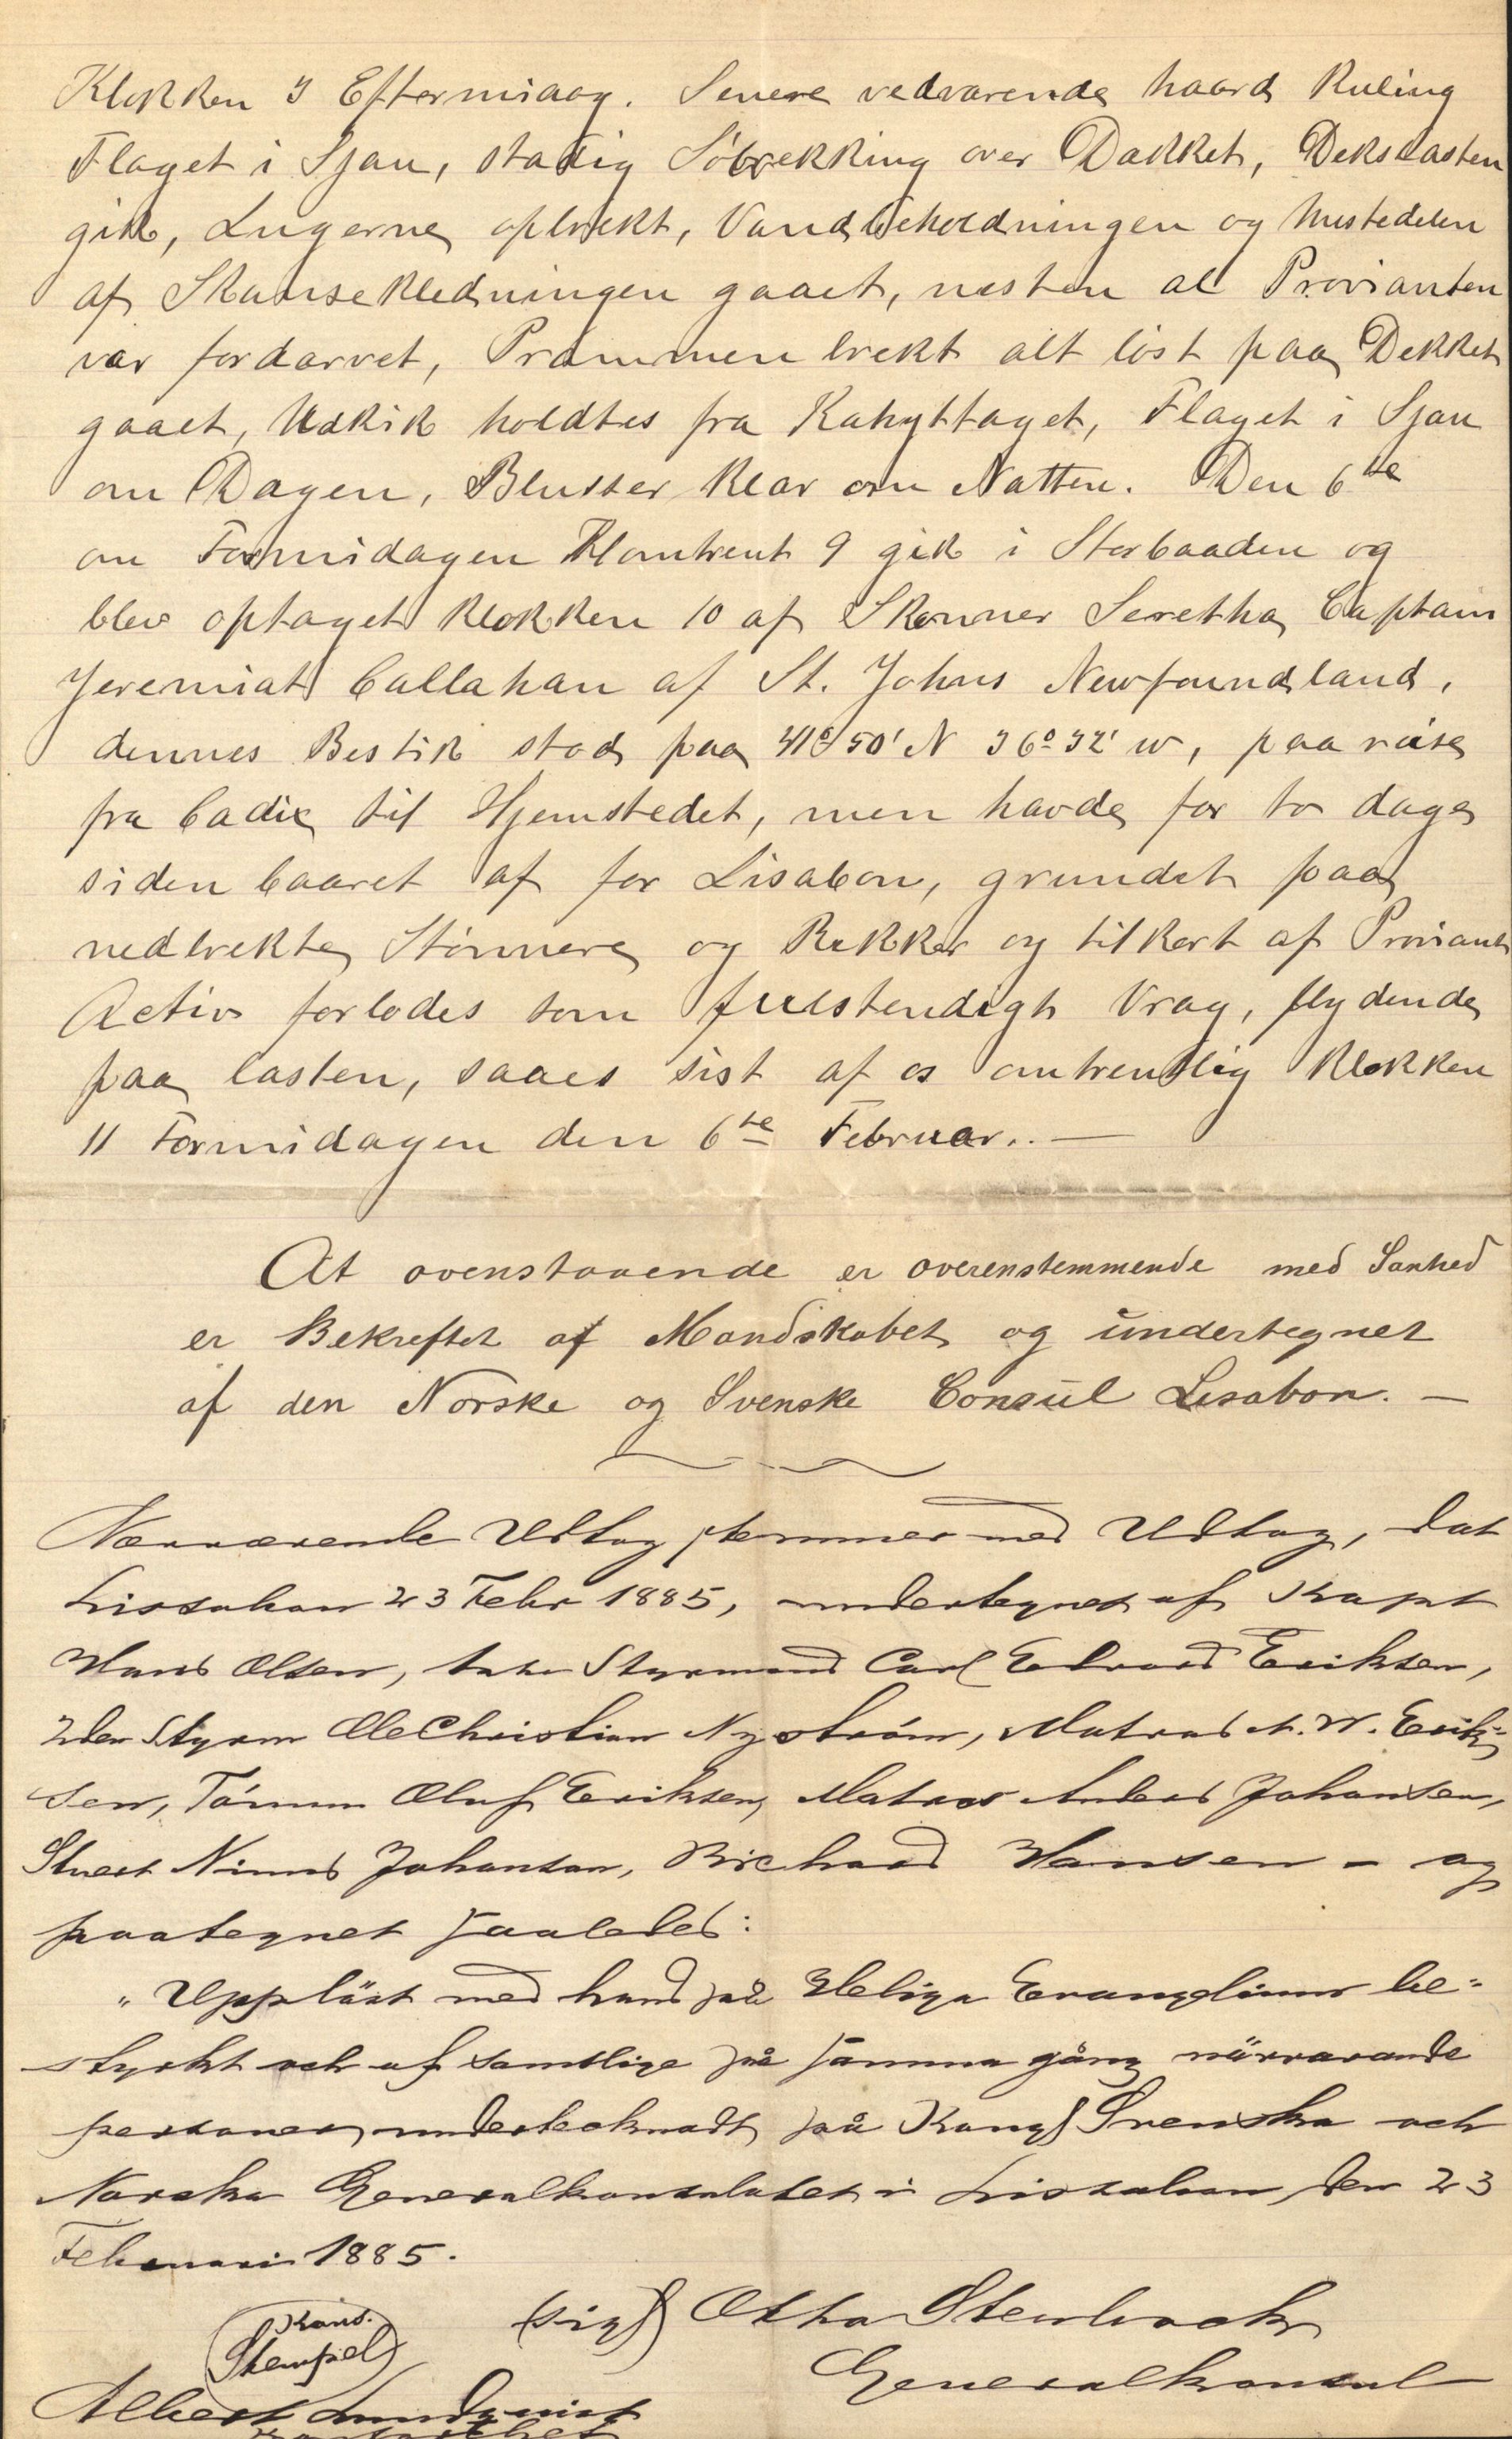 Klokken 3 Eftermidag. Senere vedvarende haard Kuling
Flaget i Sjau, stadig Söbrekking over Dækket, Dekslasten
gik, Lugerne opbrekt, Vandbeholdningen og mestedelen
af Skansekledningen gaaet, nesten al Provianten
var fordærvet, Prammen brekt alt löst paa Dekket
gaaet, Udkik holdtes fra Kahyttaget, Flaget i Sjau
om Dagen, Blusser klar om Natten. Den 6te
om Formidagen Klomtrent 9 gik i Storbaaden og
blev optaget klokken 10 af Skonner Seretha, Captain
Jeremiat Callahan af St. Johns Newfoundland,
dennes Bestik stod paa 41° 50' N 36° 32' W, paa reise
fra Cadix til Hjemstedet, men havde for to dage
siden baaret af for Lisabon, grundet paa
nedbrekte Stönnere og Rekker og tilkort af Proviant
Activ forlodes som fulstendigt Vrag, flydende
paa lasten, saaes sist af os omtrentlig Klokken
11 Formidagen den 6te Februar. —
At ovenstaaende er overenstemmende med Sanhed
er Bekreftet af Mandskabet og undertegnet
af den Norske og Svenske Consul Lisabon. —
Nærværende Udtog stemmer med Udtog, dat
Lissabon 23 Febr 1885, undertegnet af Kapt
Hans Olsen, Styrmand Carl Edvard Eriksen,
2den Styrm Ole Christian Nyström, Matros A. W. Erik-
sen, Tömm Oluf Eriksen, Matros Anders Johansen,
Stuert Johansen, Richard Hansen - og
paategnet saaledes:
"Uppläst med hand på Heliga Evangelium be-
styrkt och af samtlige på samma gång närvarande
personer undertecknadt på Kongl Svenska och
Norska Generalkonsulatet i Lissabon den 23
Februari 1885.
(sign) Otto Stenbock
Generalkonsul
Kons.
Stempel
Albert Lundqvist